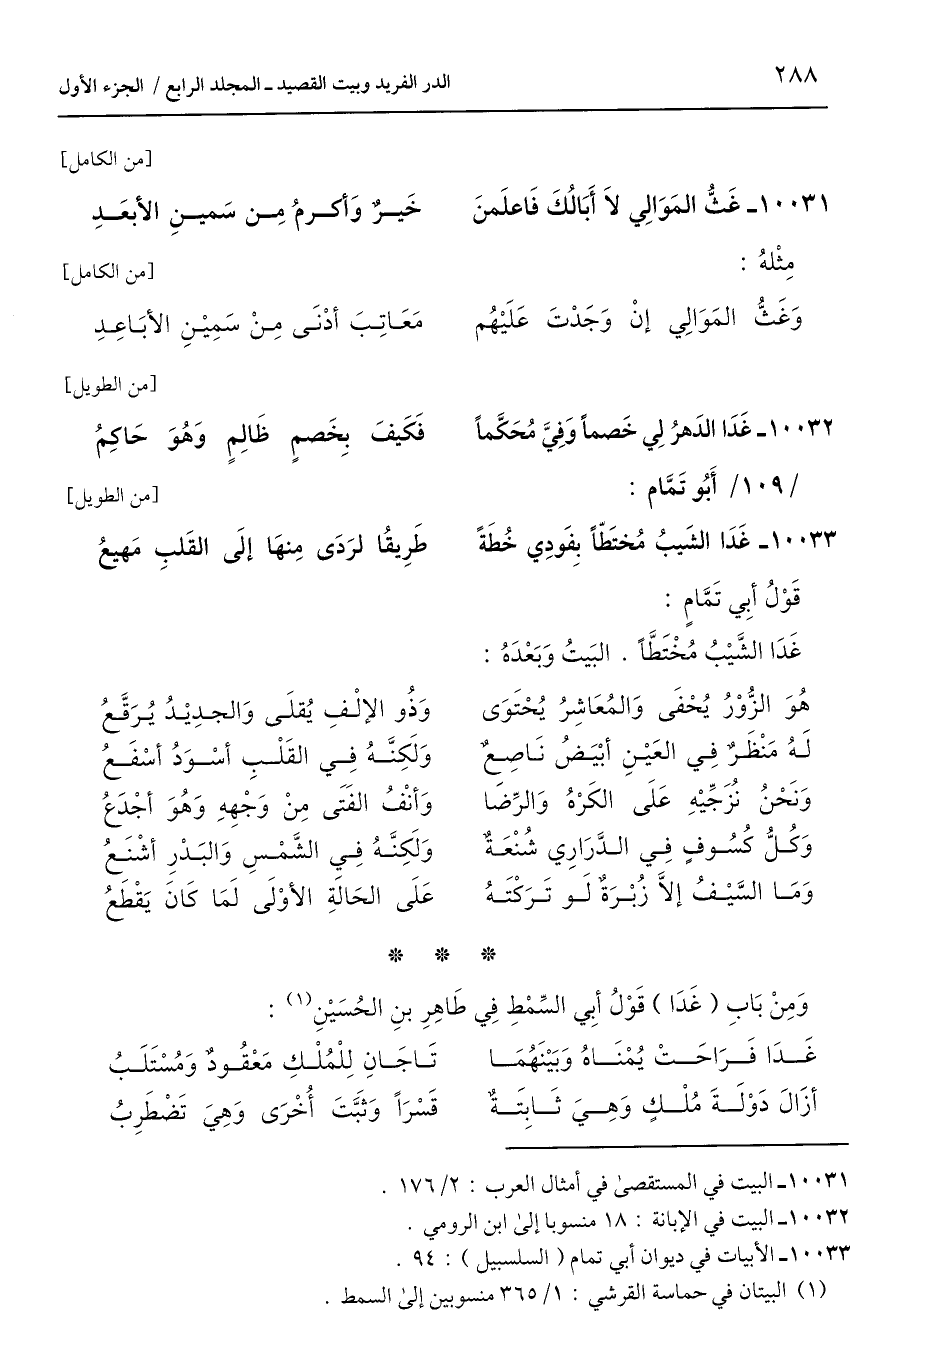 ٢٨٨ الدر الفريد وبيت القصيد ـ المجلد الرابع / الجزء الأول
[من الكامل]
١٠٠٣١ـ غَثُّ المَوَالِي لاَ أَبَالُكَ فَاعلَمنَ خَيرٌ وَأكرمُ مِن سَمينِ الأبعَدِ
مِثْلهُ : [من الكامل]
وَغَثُّ المَوَالِي إنْ وَجَدْتَ عَلَيْهُم مَعَاتِبَ أدْنَى مِنْ سَمِيْنِ الأبَاعِدِ
[من الطويل]
١٠٠٣٢ـ غَدَا الدَهرُ لِي خَصماً وَفِيَّ مُحَكَّماً فَكَيفَ بِخَصمٍ ظَالِمٍ وَهُوَ حَاكِمُ
/١٠٩/ أَبُو تَمَّام : [من الطويل]
١٠٠٣٣ـ غَدَا الشَيبُ مُختَطّاً بِفَودِي خُطَةً طَرِيقُا لرَدَى مِنهَا إلَى القَلبِ مَهيَعُ
قَوْلُ أبِي تَمَّامٍ :
غَدَا الشَّيْبُ مُخْتَطَّاً . البَيتُ وَبَعْدَهُ :
هُوَ الزُّوْرُ يُحْفَى وَالمُعَاشِرُ يُحْتَوَى وَذُو الإلْفِ يُقلَى وَالجدِيْدُ يُرَقَّعُ
لَهُ مَنْظَرٌ فِي العَيْنِ أبْيَضُ نَاصِعٌ وَلَكِنَّهُ فِي القَلْبِ أسْوَدُ أسْفَعُ
وَنَحْنُ نُزَجِّيْهِ عَلَى الكَرْهُ وَالرِّضَا وَأنْفُ الفَتَى مِنْ وَجْهِهِ وَهُوَ أجْدَعُ
وَكُلُّ كُسُوفٍ فِي الدَّرَارِي شُنْعَةٌ وَلَكِنَّهُ فِي الشَّمْسِ وَالبَدْرِ أشْنَعُ
وَمَا السَّيْفُ إلاَّ زُبْرَةٌ لَو تَرَكْتَهُ عَلَى الحَالَةِ الأوْلَى لَمَا كَانَ يَقْطَعُ
* * *
وَمِنْ بَابِ ( غَدَا ) قَوْلُ أبِي السِّمْطِ فِي طَاهِرِ بنِ الحُسَيْنِ(١) :
غَدَا فَرَاحَتْ يُمْنَاهُ وَبَيْنَهُمَا تَاجَانِ لِلْمُلْكِ مَعْقُودٌ وَمُسْتَلَبُ
أزَالَ دَوْلَةَ مُلْكٍ وَهِيَ ثَابِتَةٌ قَسْرَاً وَثَبَّتَ أُخْرَى وَهِيَ تَضْطَرِبُ
١٠٠٣١ـ البيت في المستقصىٰ في أمثال العرب : ٢/ ١٧٦ .
١٠٠٣٢ـ البيت في الإبانة : ١٨ منسوبا إلىٰ ابن الرومي .
١٠٠٣٣ـ الأبيات في ديوان أبي تمام ( السلسبيل ) : ٩٤ .
(١) البيتان في حماسة القرشي : ١/ ٣٦٥ منسوبين إلىٰ السمط .